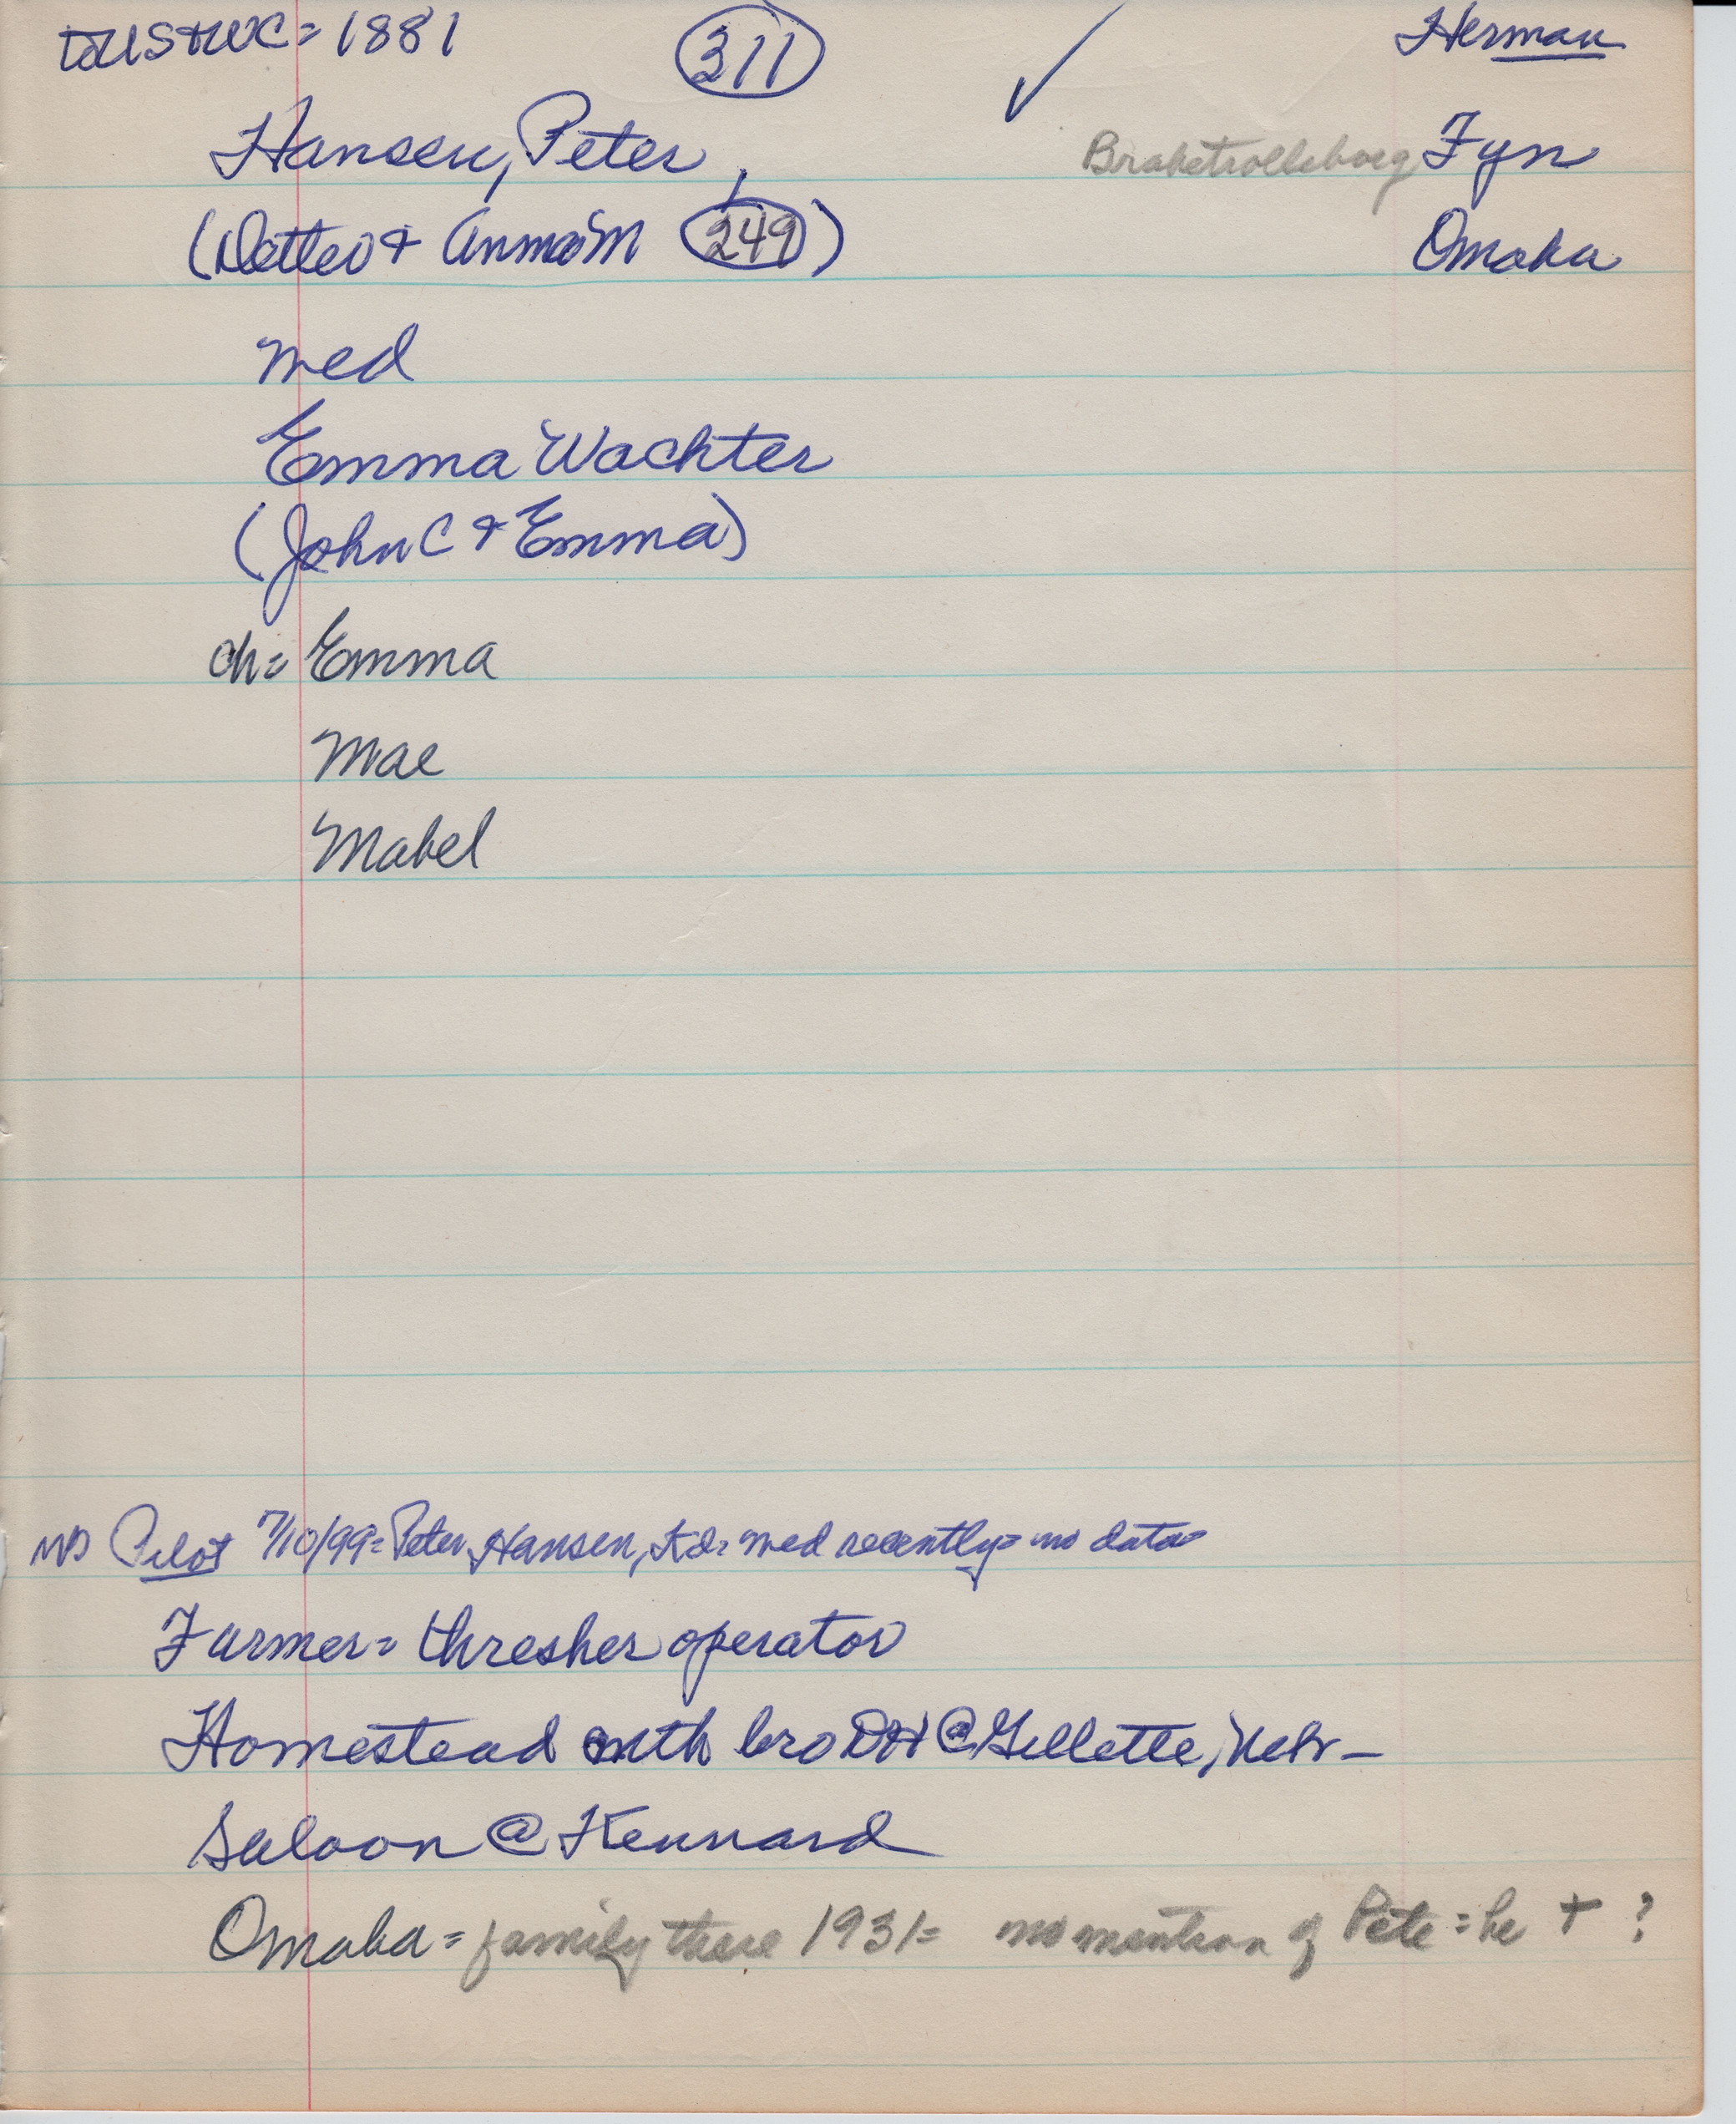 to US & WC = 1881 311 ✓ Herman
Hansen, Peter, Braketrolleborg Fyn
(Detlev & Anna M 249) Omaha
med
Emma Wachter
(John C & Emma)
ch = Emma
Mae
Mabel
Pilot 7/10/99 = Peter Hansen, Kd = med recently = no data =
Farmer = thresher operator
Homestead with bro DH @ Gillette, Nebr -
Saloon @ Kennard
Omaha = family there 1931 = no mention of Pete = he + ?